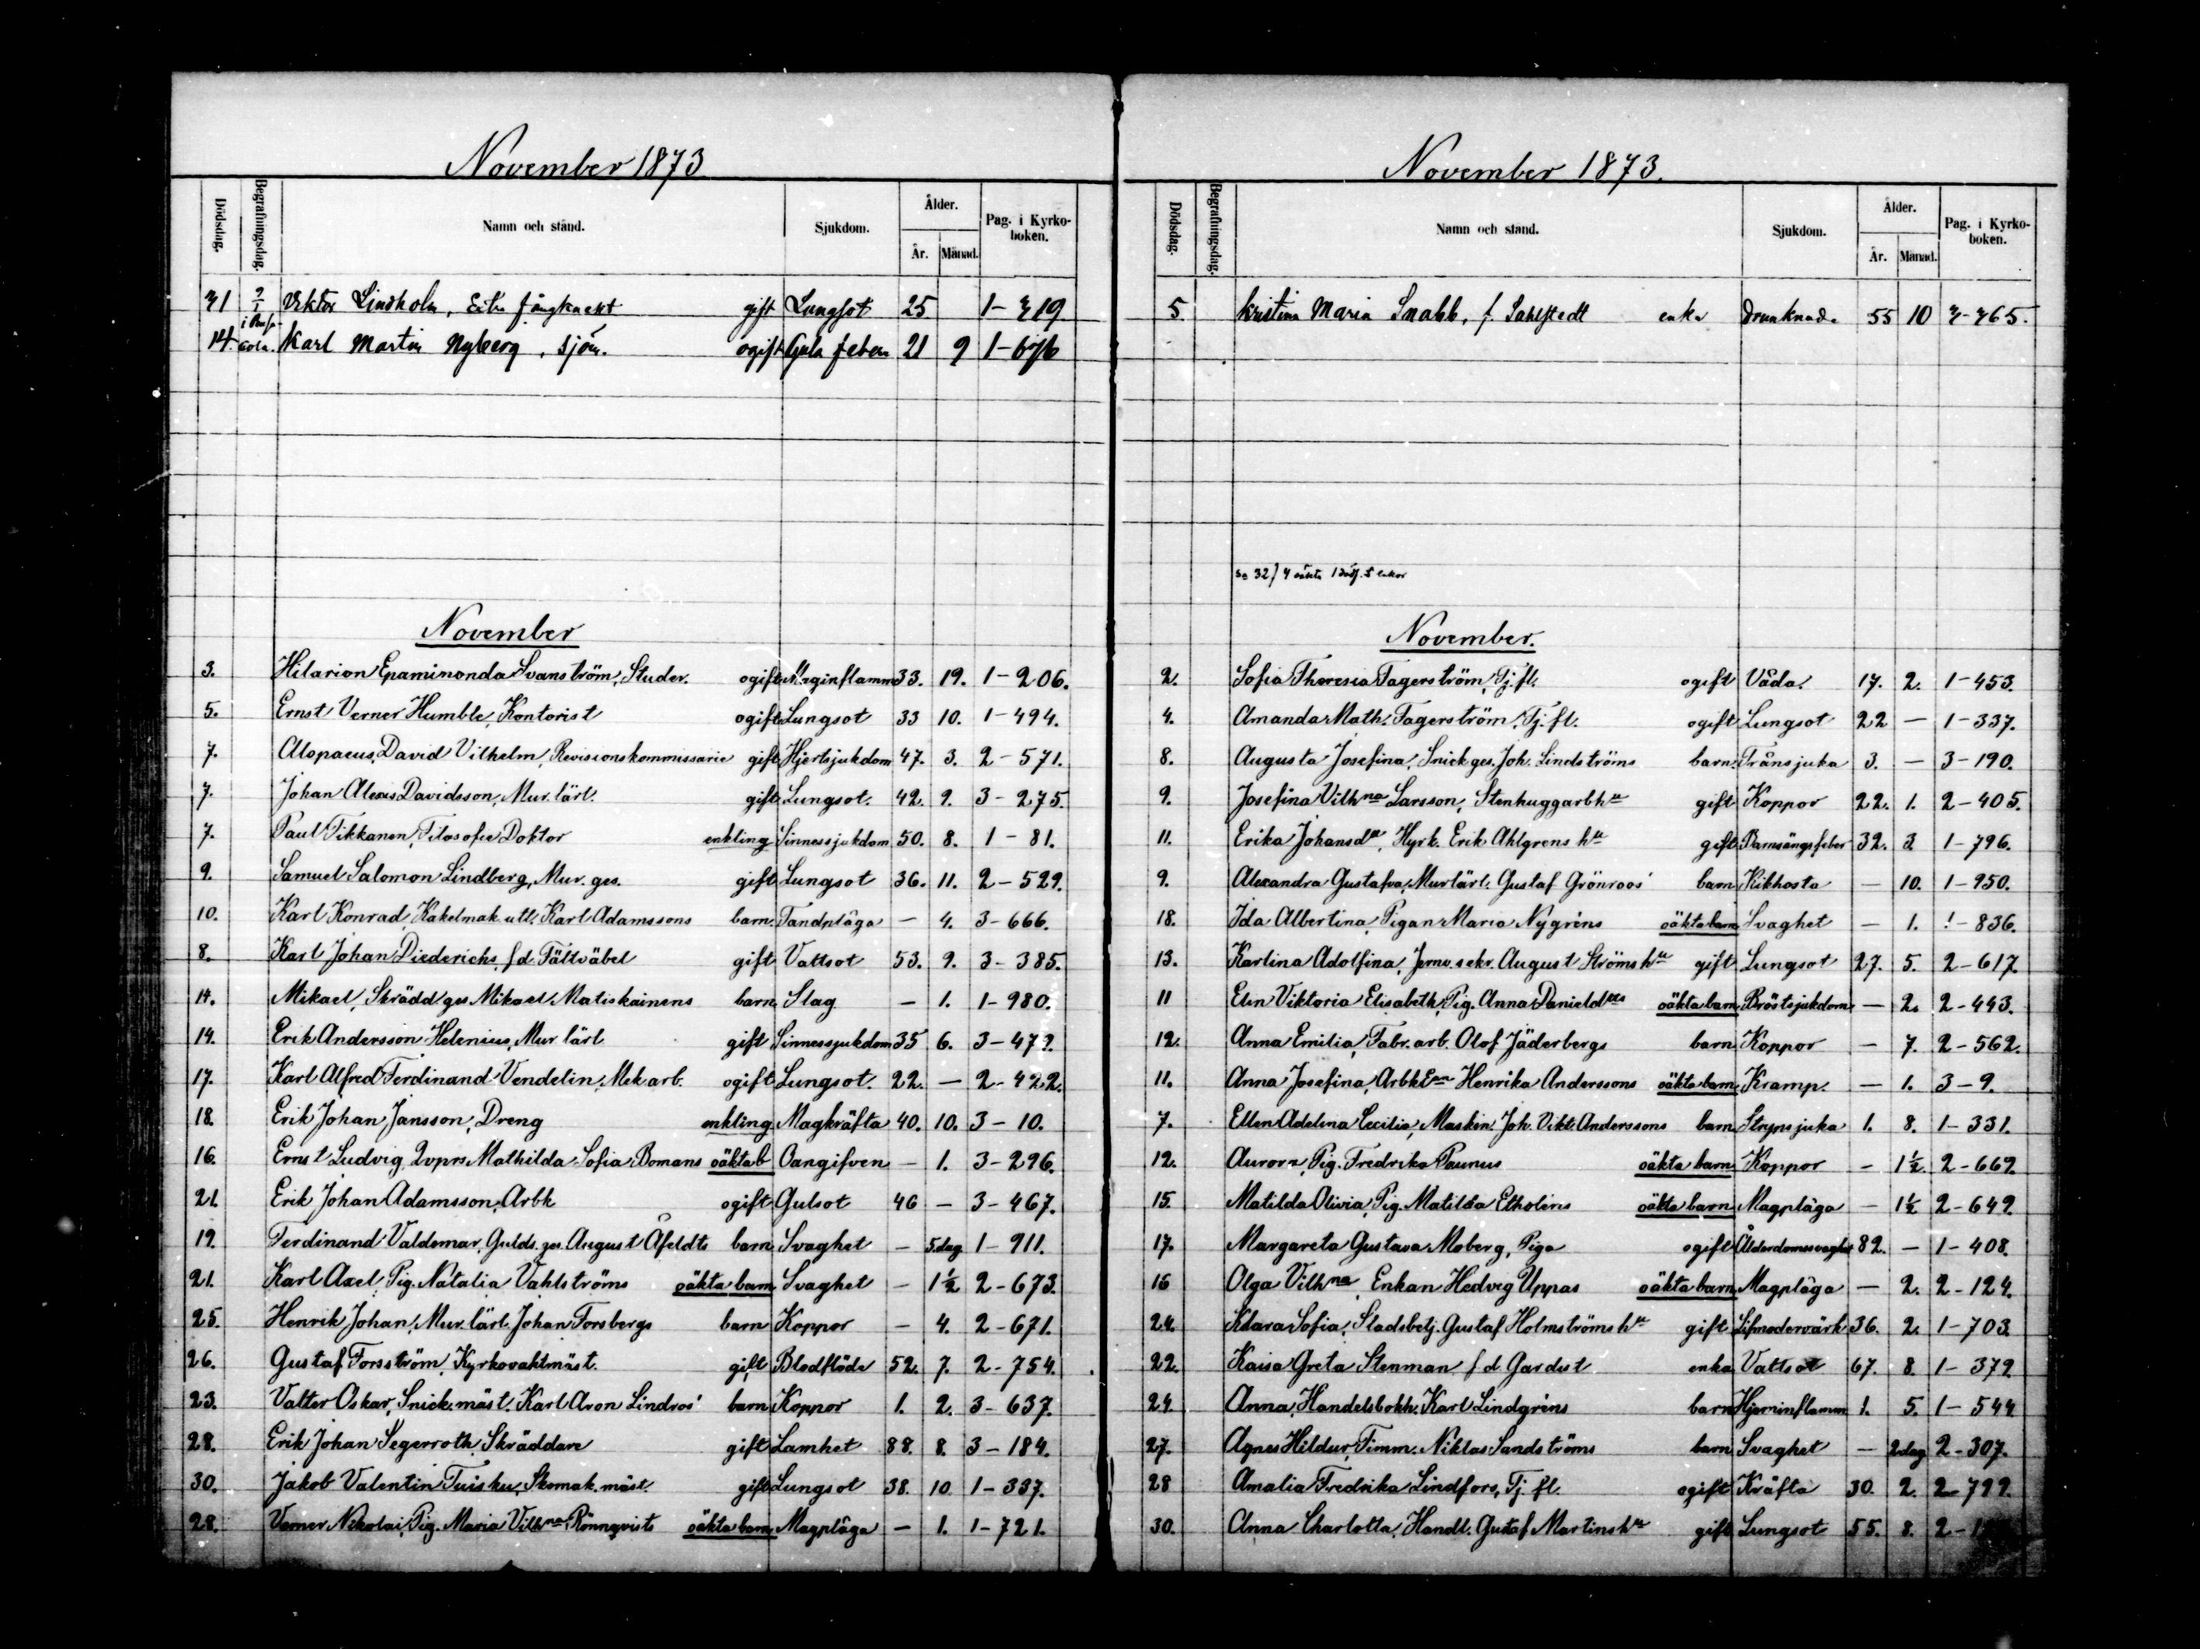 November 1873
Dödsdag. Begrafningsdag. Namn och stånd. Sjukdom. Ålder. År. Månad. Pag. i Kyrkoboken.
31 2/1 Viktor Lindholm, Extra fångknekt gift Lungsot 25 1-319
14. Karl Martin Nyberg, sjöm. ogift Gula febern 21 9 1-676
November
3. Hilarion Epaminonda Svanström, Studer. ogift Maginflamm 33. 19. 1-206.
5. Ernst Verner Humble, Kontorist ogift Lungsot 33 10. 1-494.
7. Alopaeus, David Vilhelm, Revisionskommissarie gift Hjertsjukdom 47. 3. 2-571.
7. Johan Alexis Davidsson, Mur.lärl. gift Lungsot. 42. 9. 3-275.
7. Paul Tikkanen, Filosofie Doktor enkling Sinnessjukdom 50. 8. 1-81.
9. Samuel Salomon Lindberg, Mur. ges. gift Lungsot 36. 11. 2-529.
10. Karl Konrad, Kakelmak.utl. Karl Adamssons barn. Tandplåga - 4. 3-666.
8. Karl Johan Diederichs, f.d. Fältväbel gift Vattsot 53. 9. 3-385.
14. Mikael, Skrädd ges Mikael Matiskainens barn Slag - 1. 1-980.
14. Erik Andersson Helenius, Mur lärl gift Sinnessjukdom 35 6. 3-479.
17. Karl Alfred Ferdinand Vendelin, Mek arb. ogift Lungsot. 22. - 2-422.
18. Erik Johan Jansson, Dreng enkling Magkräfta 40. 10. 3-10.
16. Ernst Ludvig, Qvprs Mathilda Sofia Bomans oäkta b Oangifven - 1. 3-296.
21. Erik Johan Adamsson, Arbk ogift Gulsot 46 - 3-467.
19. Ferdinand Valdemar, Gulds. ges. August Åfeldts barn Svaghet - 5.dag 1-911.
21. Karl Axel, Pig. Natalia Vahlströms oäkta barn Svaghet - 1½ 2-673.
25. Henrik Johan, Mur. lärl. Johan Forsbergs barn Koppor - 4. 2-671.
26. Gustaf Forsström, Kyrkovaktmäst. gift Blodflöde 52. 7. 2-754.
23. Valter Oskar, Snick.mäst. Karl Aron Lindros' barn Koppor 1. 2. 3-637.
28. Erik Johan Segerroth, Skräddare gift Lamhet 88. 8. 3-184.
30. Jakob Valentin Tuisku, Skomak. mäst. gift Lungsot 38. 10 1-337.
28. Verner Nikolai, Pig. Maria Vilhna Rönnqvists oäkta barn Magplåga - 1. 1-721.
November 1873.
Dödsdag. Begrafningsdag. Namn och stånd. Sjukdom. Ålder. År. Månad. Pag. i Kyrkoboken.
5. Kristina Maria Snabb, f. Sahlstedt enka Drunknade 55 10 3-365.
November.
2. Sofia Theresia Fagerström, Tj.fl. ogift Våda. 17. 2. 1-453.
4. Amanda Math. Fagerström, Tj. fl. ogift Lungsot 22 - 1-337.
8. Augusta Josefina, Snickges. Joh. Lindströms barn. Trånsjuka 3. - 3-190.
9. Josefina Vilhna Larsson, Stenhuggarb hu gift Koppor 22. 1. 2-405.
11. Erika Johansdr, Hyrk. Erik Ahlgrens hu gift Barnsängsfeber 32. 3 1-796.
9. Alexandra Gustafva, Murlärl. Gustaf Grönroos' barn Kikhosta - 10. 1-950.
18. Ida Albertina, Pigan Maria Nygréns oäkta barn Svaghet - 1. 1-836.
13. Karlina Adolfina, Jernv.sekr. August Ströms hu gift Lungsot 27. 5. 2-617.
11 Elin Viktoria Elisabeth, Pig. Anna Danieldrs oäkta barn Bröstsjukdom - 2. 2-443.
12. Anna Emilia, Fabr. arb. Olof Jäderbergs barn Koppor - 7. 2-562.
11. Anna Josefina, ArbkEnn Henrika Anderssons oäkta barn Kramp. - 1. 3-9.
7. Ellen Adelina Cecilia, Maskin. Joh. Vikt. Anderssons barn Strypsjuka 1. 8. 1-331.
12. Aurora, Pig. Fredrika Paunus oäkta barn Koppor - 1½. 2-669.
15. Matilda Olivia, Pig. Matilda Etholéns oäkta barn Magplåga - 1½ 2-649.
17. Margareta Gustava Moberg, Piga ogift Ålderdomssvaghet 82. - 1-408.
16 Olga Vilhna, Enkan Hedvig Uppas oäkta barn Magplåga - 2. 2-124.
24. Klara Sofia, Stadsbetj. Gustaf Holmströms hu gift Lifmodervärk 36. 2. 1-703.
22. Kaisa Greta Stenman f d Gardist enka Vattsot 67. 8. 1-379.
24. Anna, Handelsbokh. Karl Lindgréns barn Hjerninflamm 1. 5. 1-544
27. Agnes Hildur, Timm. Niklas Sandströms barn Svaghet - 2.dag 2-307.
28 Amalia Fredrika Lindfors, Tj. fl. ogift Kräfta 30. 2. 2-799.
30. Anna Charlotta, Handl. Gustaf Martins hu gift Lungsot 55. 8. 2-